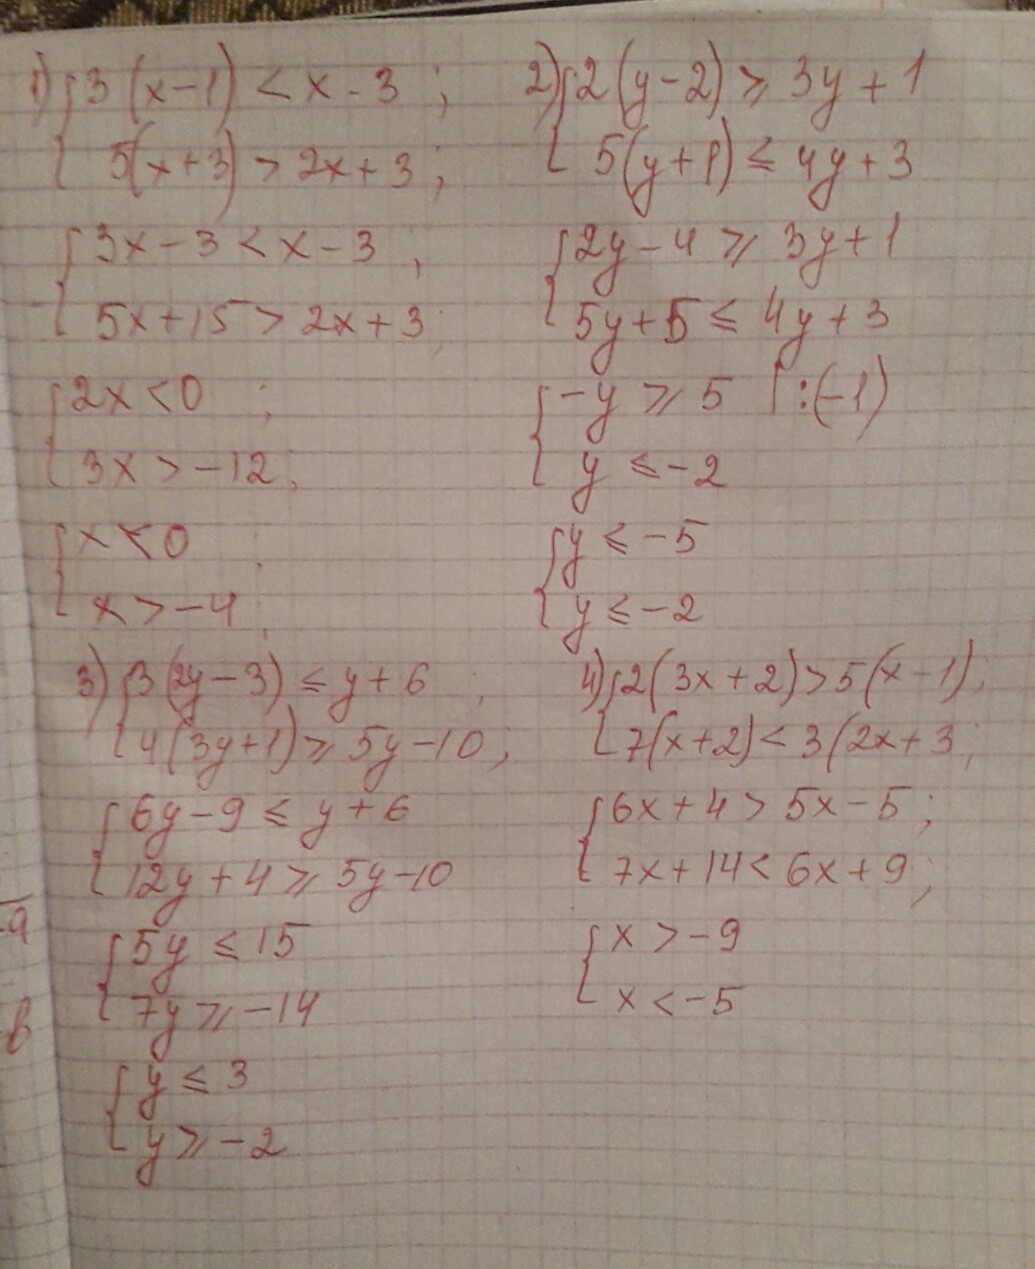 1) { 3(x-1) < x-3 ;
5(x+3) > 2x+3 ;
{ 3x-3 < x-3 ;
5x+15 > 2x+3 ;
{ 2x < 0 ;
3x > -12 ;
{ x < 0
x > -4
2) { 2(y-2) ⩾ 3y+1
5(y+1) ⩽ 4y+3
{ 2y-4 ⩾ 3y+1
5y+5 ⩽ 4y+3
{ -y ⩾ 5 | :(-1)
y ⩽ -2
{ y ⩽ -5
y ⩽ -2
3) { 3(2y-3) ⩽ y+6 ;
4(3y+1) ⩾ 5y-10 ;
{ 6y-9 ⩽ y+6
12y+4 ⩾ 5y-10
{ 5y ⩽ 15
7y ⩾ -14
{ y ⩽ 3
y ⩾ -2
4) { 2(3x+2) > 5(x-1) ;
7(x+2) < 3(2x+3 ;
{ 6x+4 > 5x-5 ;
7x+14 < 6x+9 ;
{ x > -9
x < -5